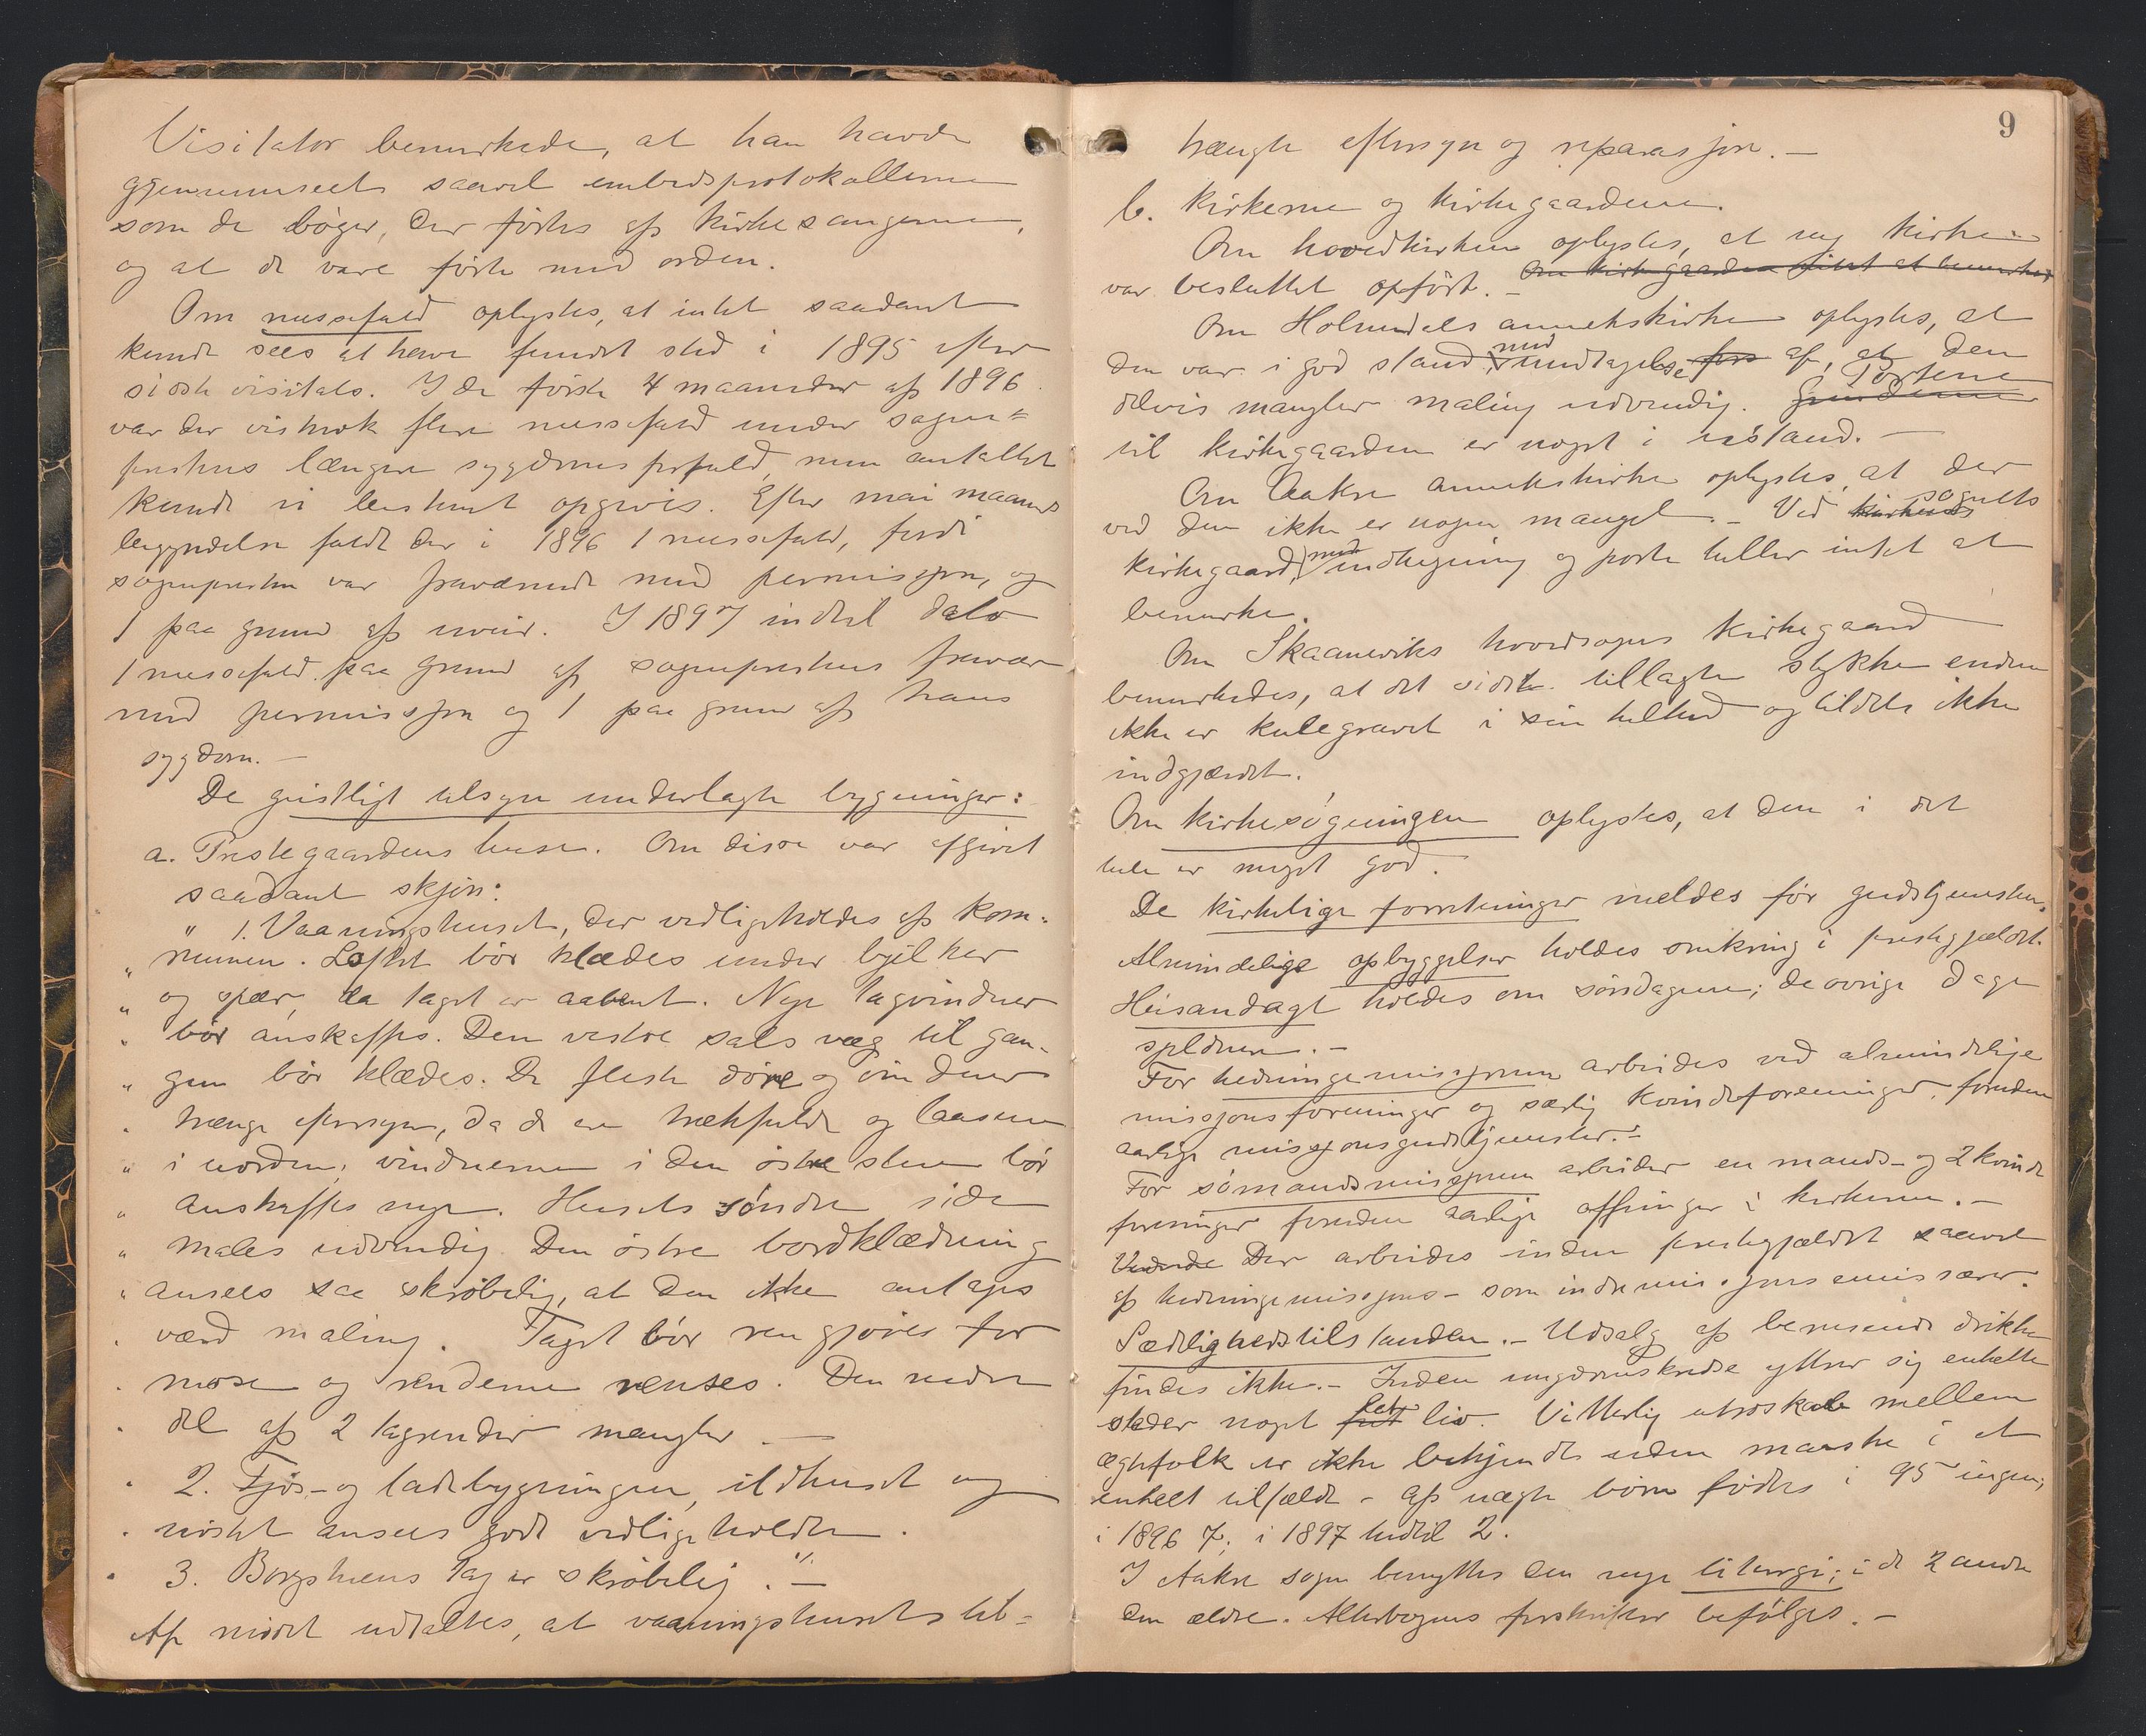 Visitator bemerkede, at han havde
gjennemseet saavel embedsprotokollerne
som de bøger, der førtes af kirkesangerne,
og at de vare førte med orden.
Om messefald oplystes, at intet saadant
kunde sees at have fundet sted i 1895 efter
sidste visitats. I de første 4 maaneder af 1896
var der vistnok flere messefald under sogne-
prestens længere sygdomsforfald, men antallet
kunde ei bestemt opgives. Efter mai maaneds
begyndelse faldt der i 1896 1 messefald, fordi
sognepresten var fraværende med permissjon, og
1 paa grund af uveir. I 1897 indtil dato
1 messefald paa grund af sogneprestens fravær
med permissjon og 1 paa grund af hans
sygdom. —
De geistligt tilsyn underlagte bygninger:
a. Prestegaardens huse. Om disse var afgivet
saadant skjøn:
" 1. Vaaningshuset, der vedligeholdes af kom-
" munen. Loftet bør klædes under bjelker
" og spær, da taget er aabent. Nye tagvinduer
" bør anskaffes. Den vestre sals væg til gan-
" gen bør klædes. De fleste døre og vinduer
" trænge eftersyn, da de ere trækfulde og laasene
" i uorden; vinduerne i den østre stue bør
" anskaffes nye. Husets søndre side
" males udvendig. Den østre bordklædning
" ansees saa skrøbelig, at den ikke antages
" værd maling. Taget bør rengjøres for
" mose og renderne renses. Den nedre
" del af 2 tagrender mangler. —
" 2. Fjøs- og ladebygningen, ildhuset og
" nøstet ansees godt vedligeholdte.
" 3. Borgstuens tag er skrøbelig." —
Af mødet udtaltes, at vaaningshusets til-
9
trængte eftersyn og reparasjon. —
b. Kirkerne og kirkegaardene.
Om hovedkirken oplystes, at ny kirke
var besluttet opført. — Om kirkegaarden intet at bemerke
Om Holmedals annekskirke oplystes, at
den var i god stand, med undtagelse fors af, at den
delvis mangler maling udvendig. Grinderne Portene
til kirkegaarden er noget i ustand. —
Om Aakre annekskirke oplystes, at der
ved den ikke er nogen mangel. — Ved kirkens sognets
kirkegaard, med indhegning og porte heller intet at
bemerke.
Om Skaaneviks hovedsogns kirkegaard
bemerkedes, at det sidste tillagte stykke endnu
ikke er kulegravet i sin helhed og tildels ikke
indgjærdet.
Om kirkesøgningen oplystes, at den i det
hele er meget god.
De kirkelige forretninger meldes før gudstjenesten.
Almindelige opbyggelser holdes omkring i prestegjældet.
Husandagt holdes om søndagene; de øvrige dage
spldnere. —
For hedningemissjonen arbeides ved almindelige
missjonsforeninger og særlig kvindeforeninger, foruden
aarlige missjonsgudstjenester. —
For sømandsmissjonen arbeider en mands- og 2 kvinde
foreninger foruden aarlige offringer i kirkerne. —
Der arbeides inden prestegjældet saavel
af hedningemissjons- som indremissjonsemissærer.
Sædelighedstilstanden. — Udsalg af berusende drikke
findes ikke. — Inden ungdomskredse yttrer sig enkelte
steder noget frit let liv. Vitterlig utroskab mellem
ægtefolk er ikke bekjendt uden maaske i et
enkelt tilfælde. — Af uægte børn fødtes i 95 ingen,
i 1896 7, i 1897 hidtil 2.
I Aakre sogn benyttes den nye liturgi; i de 2 andre
den ældre. Alterbogens forskrifter befølges. —